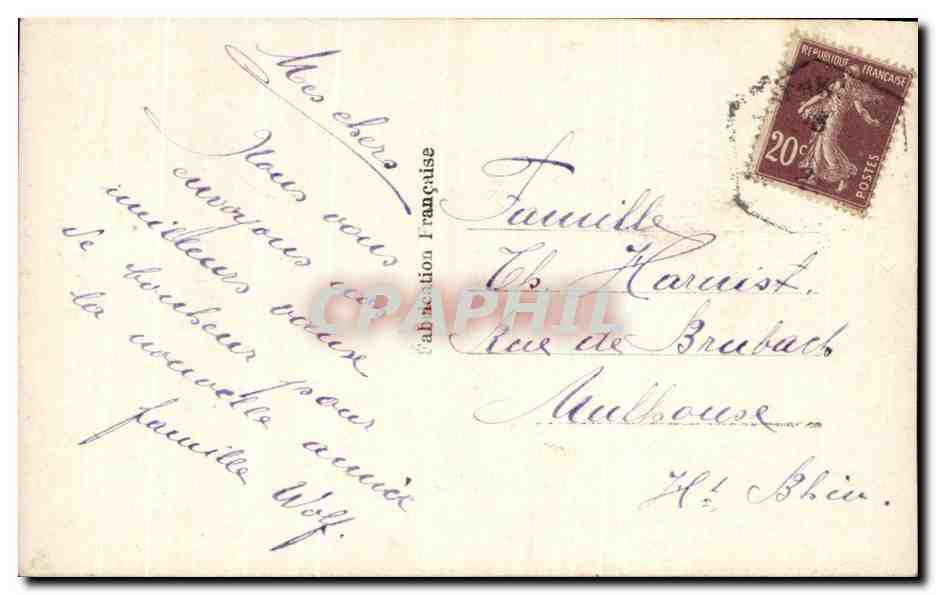 Mes chers
Nous vous
envoyons les
meilleurs vœux
de bonheur pour
la nouvelle année
famille Wolf.
Fabrication Française
CPAPHIL
REPUBLIQUE FRANÇAISE
20c
POSTES
Famille
Ch. Harnist.
Rue de Brubach
Mulhouse
Ht Rhin.